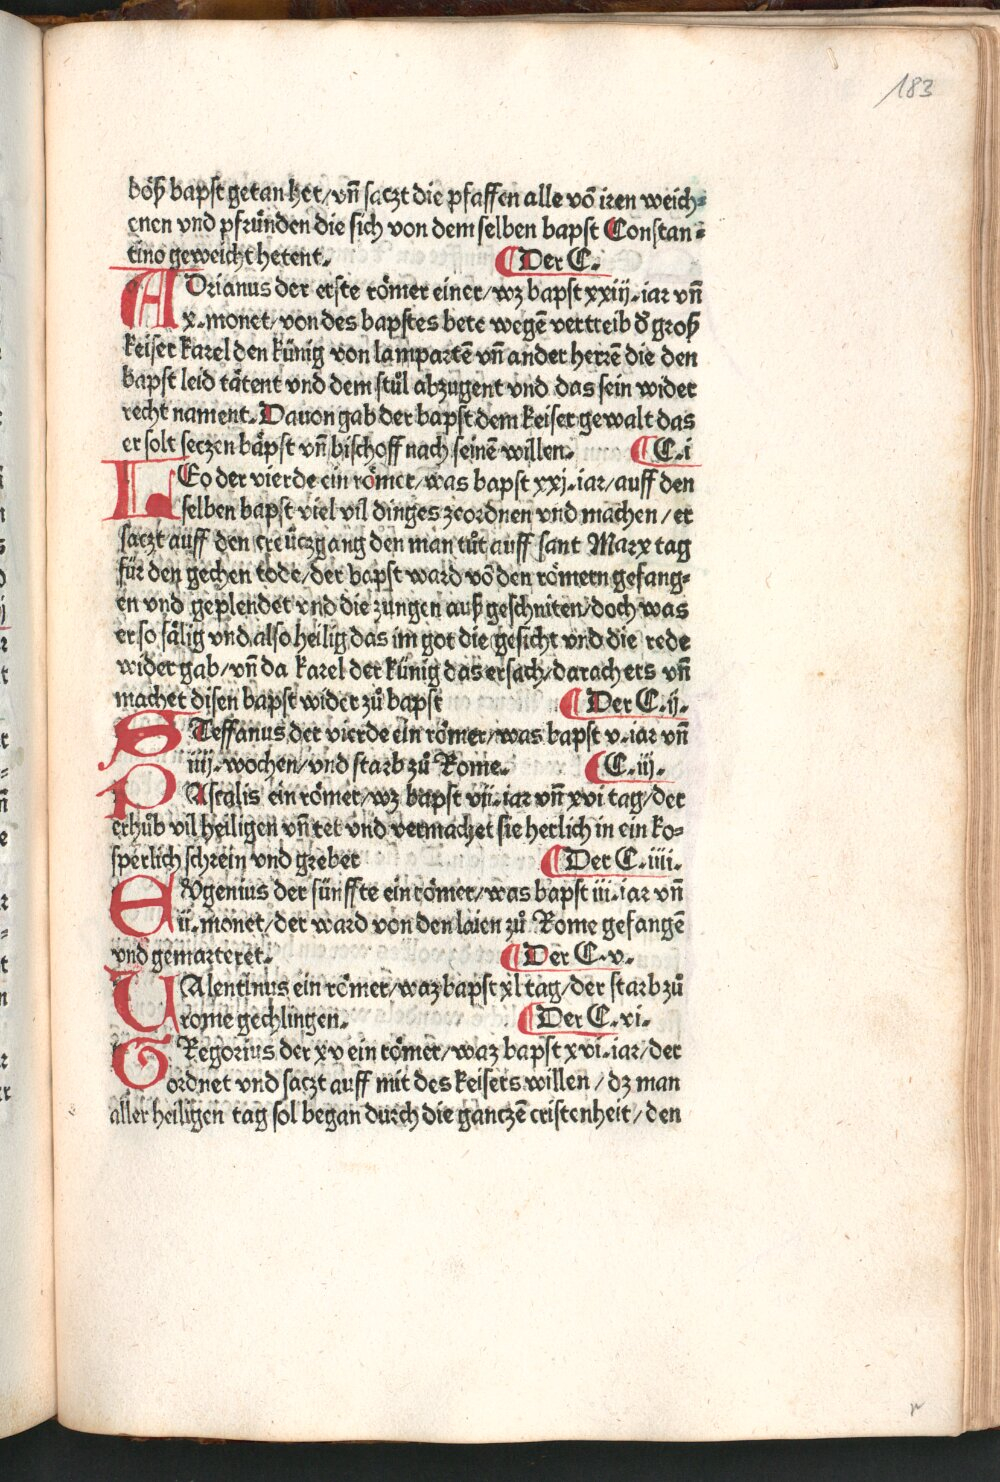 183
böß bapst getan het/vn̄ saczt die pfaffen alle vō iren weich⸗
enen vnd pfründen die sich von dem selben bapst Constan⸗
tino geweicht hetent. ¶ Der C.
ADrianus der erste römer einer/wz bapst xxiij.iar vn̄
x.monet/von des bapstes bete wegē vertreib d̕ groß
keiser karel den künig von lampartē vn̄ ander herrē die den
bapst leid tätent vnd dem stůl abzugent vnd das sein wider
recht nament. Dauon gab der bapst dem keiser gewalt das
er solt seczen bäpst vn̄ bischoff nach seinē willen. ¶ C.i
LEo der vierde ein römer/was bapst xxj.iar/auff den
selben bapst viel vil dinges zeordnen vnd machen/er
saczt auff den creüczgang den man tůt auff sant Marx tag
für den gechen tode/der bapst ward vō den römern gefang⸗
en vnd geplendet vnd die zungen auß geschniten/doch was
er so sälig vnd also heilig das im got die gesicht vnd die rede
wider gab/vn̄ da karel der künig das ersach/darach ers vn̄
machet disen bapst wider zů bapst ¶ Der C.ij.
STeffanus der vierde ein römer/was bapst v.iar vn̄
iiij.wochen/vnd starb zů Rome. ¶ C.iij.
PAscalis ein römer/wz bapst vij.iar vn̄ xvi tag/der
erhůb vil heiligen vn̄ tet vnd vermachet sie herlich in ein ko⸗
sperlich schrein vnd greber ¶ Der C.iiii.
EVgenius der fünffte ein römer/was bapst iii.iar vn̄
ii.monet/der ward von den laien zů Rome gefangē
vnd gemarteret. ¶ Der C.v.
VAlentinus ein römer/waz bapst xl tag/der starb zů
rome gechlingen. ¶ Der C.vi.
GRegorius der xv ein römer/waz bapst xvi.iar/der
ordnet vnd saczt auff mit des keisers willen/dz man
aller heiligen tag sol began durch die ganczē cristenheit/den